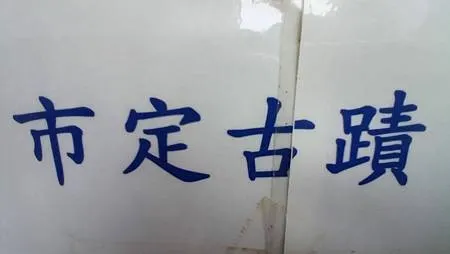 市定古蹟